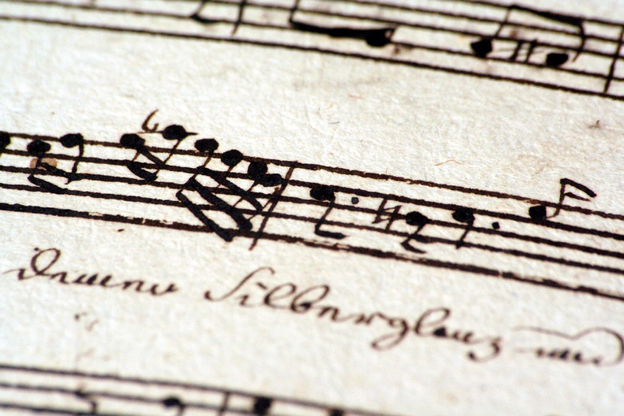 deinen Silberglanz und